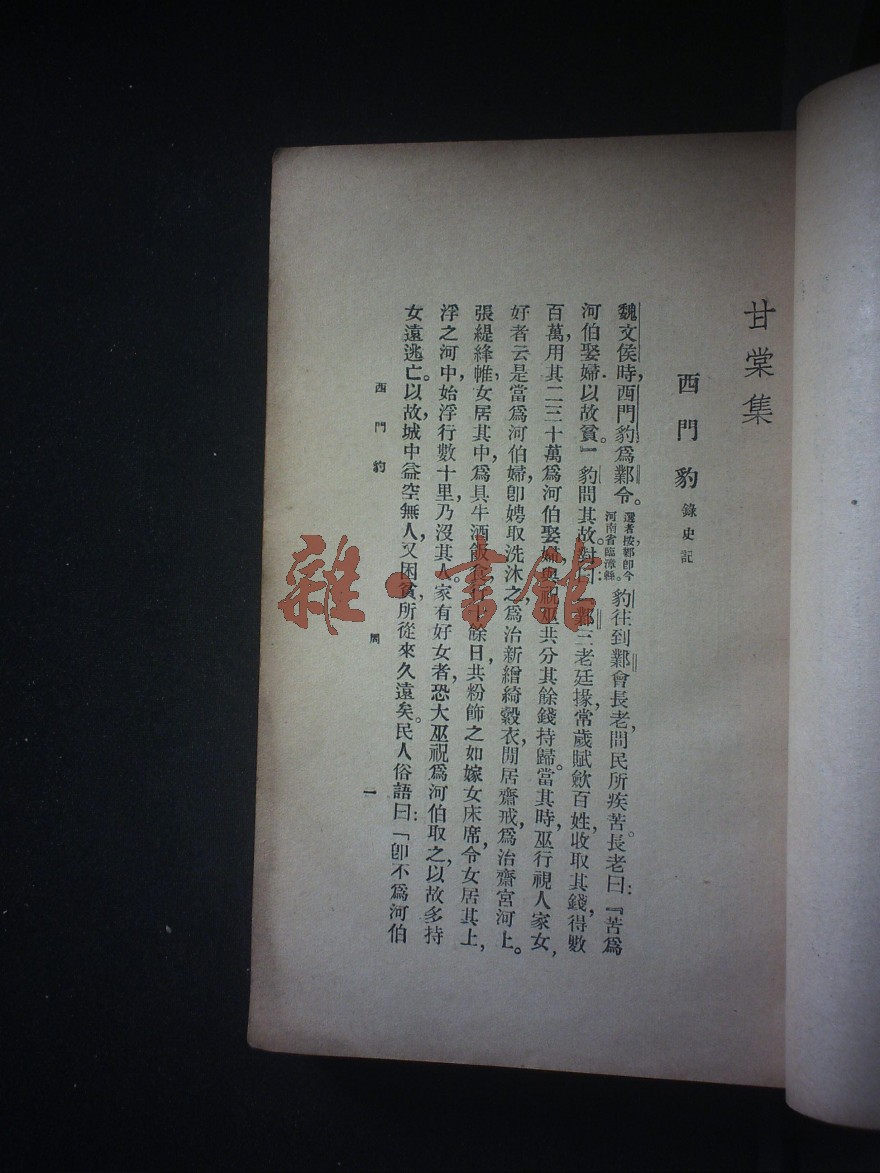 甘棠集
西門豹 錄史記
魏文侯時,西門豹爲鄴令。選者按鄴卽今河南省臨漳縣。豹往到鄴,會長老,問民所疾苦。長老曰:『苦爲
河伯娶婦,以故貧。』豹問其故。對曰:『鄴三老廷掾,常歲賦斂百姓,收取其錢,得數
百萬,用其二三十萬爲河伯娶婦,與祝巫共分其餘錢持歸。當其時,巫行視人家女,
好者云是當爲河伯婦,卽娉取,洗沐之,爲治新繒綺縠衣,閒居齋戒,爲治齋宮河上。
張緹絳帷,女居其中,爲具牛酒飯食,行十餘日,共粉飾之,如嫁女床席,令女居其上,
浮之河中,始浮行數十里乃沒。其人家有好女者,恐大巫祝爲河伯取之,以故多持
女遠逃亡。以故城中益空無人,又困貧,所從來久遠矣。民人俗語曰:「卽不爲河伯
西門豹 周 一
雜·書館